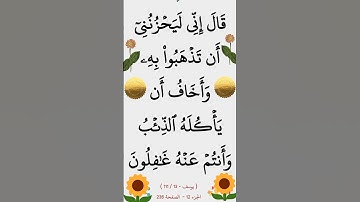 قَالَ إِنِّي لَيَحْزُنُنِيٓ
أَن تَذْهَبُوا۟ بِهِۦ
وَأَخَافُ أَن
يَأْكُلَهُ ٱلذِّئْبُ
وَأَنتُمْ عَنْهُ غَٰفِلُونَ
( يوسف - 13 / 111 )
الجزء 12 - الصفحة 236